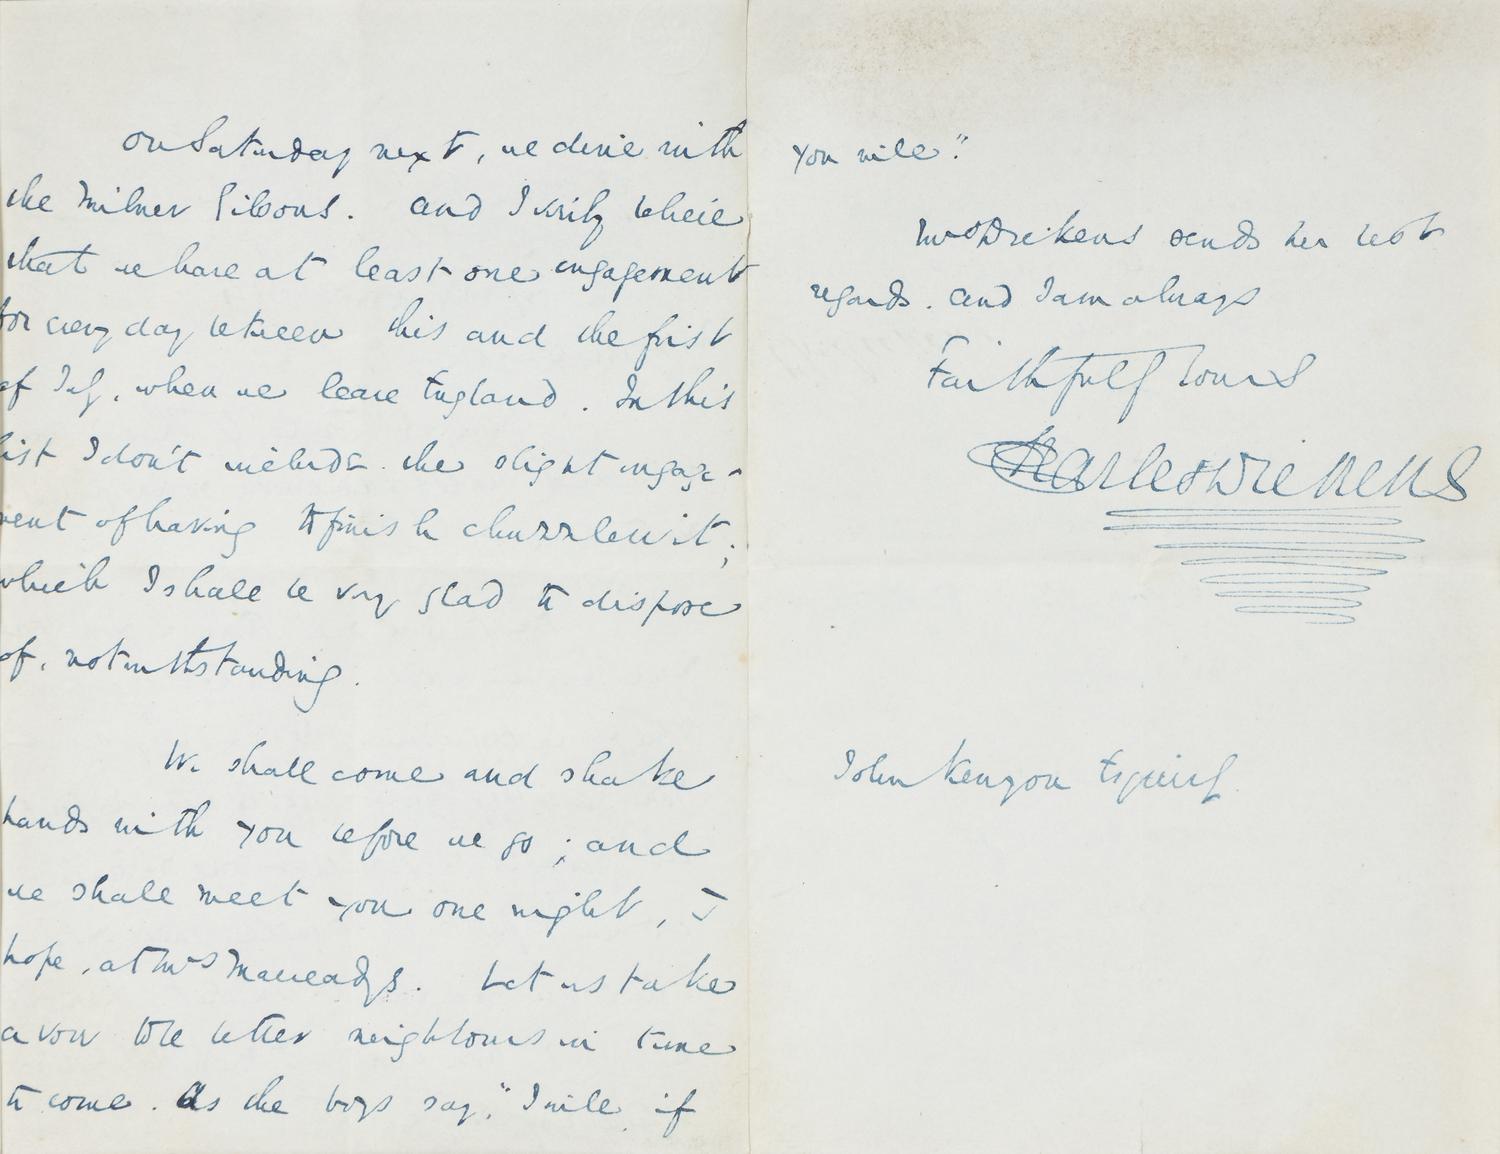 On Saturday next, we dine with
the Milner Gibsons. And I verily believe
that we have at least one engagement
for every day between this and the first
of July, when we leave England. In this
list I don't include the slight engage-
ment of having to finish Chuzzlewit;
which I shall be very glad to dispose
of, notwithstanding.
We shall come and shake
hands with you before we go; and
we shall meet you one night, I
hope, at Mrs Macready's. Let us take
a vow to be better neighbours in time
to come. As the boys say, "I will, if
you will".
Mrs Dickens sends her best
regards. and I am always
Faithfully Yours
Charles Dickens
John Kenyon Esquire